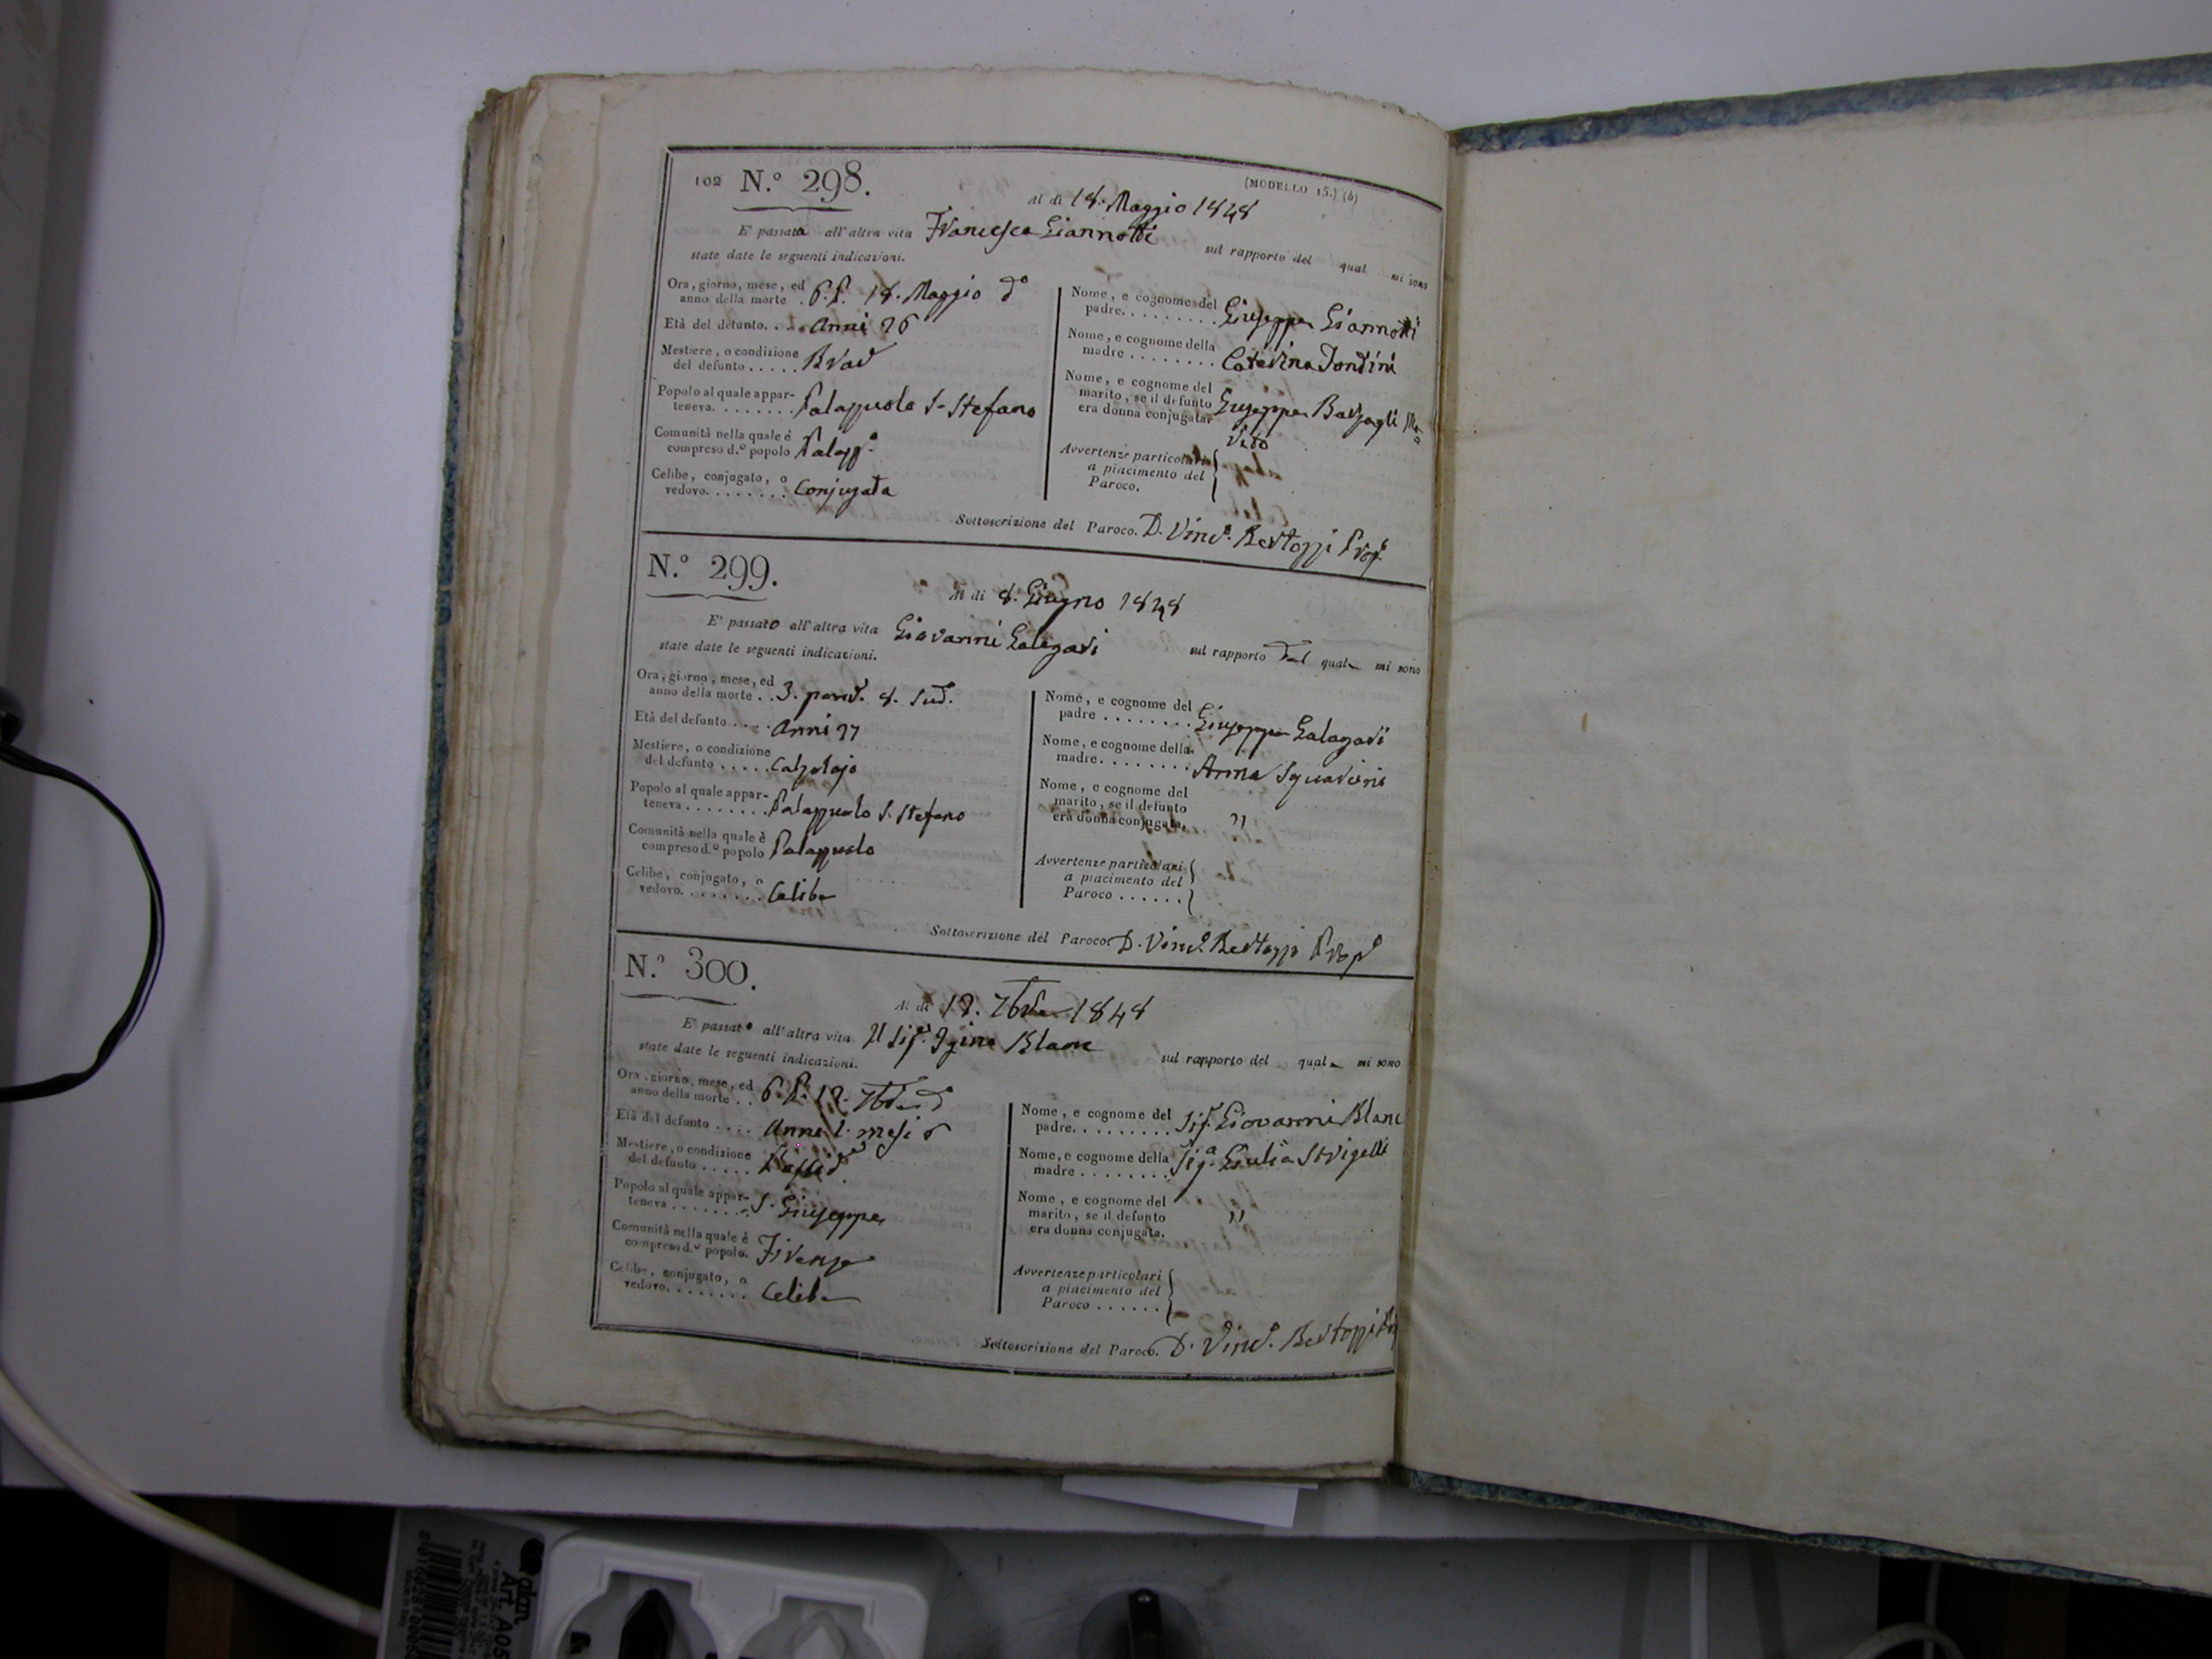 102 N.° 298. (MODELLO 15.) (b)
Al di 18. Maggio 1848
E' passata all'altra vita Francesca Giannotti sul rapporto del qual mi sono
state date le seguenti indicazioni.
Ora, giorno, mese, ed
anno della morte . 6. P. 18. Maggio do
Età del defunto. . . . Anni 26
Mestiere, o condizione
del defunto . . . . . Brac
Popolo al quale appar-
teneva. . . . . . . . Palazzuolo S. Stefano
Comunità nella quale è
compreso d.° popolo Palazzo
Celibe, conjugato, o
vedovo. . . . . . . . Conjugata
Nome, e cognome del
padre. . . . . . . . . Giuseppe Giannotti
Nome, e cognome della
madre . . . . . . . . Caterina
Nome, e cognome del
marito, se il defunto
era donna conjugata. Giuseppe Barzagli
Avvertenze particolari
a piacimento del
Paroco.
Sottoscrizione del Paroco. D. Vinc. Bertozzi Prop
N.° 299.
Al di 8. Giugno 1848
E' passato all'altra vita Giovanni Galegati sul rapporto del quale mi sono
state date le seguenti indicazioni.
Ora, giorno, mese, ed
anno della morte . . 3. pomd. 8. sud.
Età del defunto . . . . Anni 27
Mestiere, o condizione
del defunto . . . . . Calzolajo
Popolo al quale appar-
teneva . . . . . . . . Palazzuolo S. Stefano
Comunità nella quale è
compreso d.° popolo Palazzuolo
Celibe, conjugato, o
vedovo. . . . . . . . Celibe
Nome, e cognome del
padre . . . . . . . . Giuseppe Galegati
Nome, e cognome della
madre. . . . . . . . Anna
Nome, e cognome del
marito, se il defunto
era donna conjugata. "
Avvertenze particolari
a piacimento del
Paroco . . . . . .
Sottoscrizione del Paroco. D. Vinc. Bertozzi Prop
N.° 300.
Al di 12. 7bre 1848
E' passato all'altra vita Il Sig. Igino Blanc sul rapporto del quale mi sono
state date le seguenti indicazioni.
Ora, giorno, mese, ed
anno della morte . . 6. P. 12. 7bre do
Età del defunto . . . . Anni 1. mesi 6
Mestiere, o condizione
del defunto . . . . . Possid
Popolo al quale appar-
teneva . . . . . . . . S. Giuseppe
Comunità nella quale è
compreso d.° popolo. Firenze
Celibe, conjugato, o
vedovo. . . . . . . . Celibe
Nome, e cognome del
padre. . . . . . . . . Sig. Giovanni Blanc
Nome, e cognome della
madre . . . . . . . . Sig.a Giulia Strigelli
Nome, e cognome del
marito, se il defunto
era donna conjugata. "
Avvertenze particolari
a piacimento del
Paroco . . . . . .
Sottoscrizione del Paroco. D. Vinc. Bertozzi